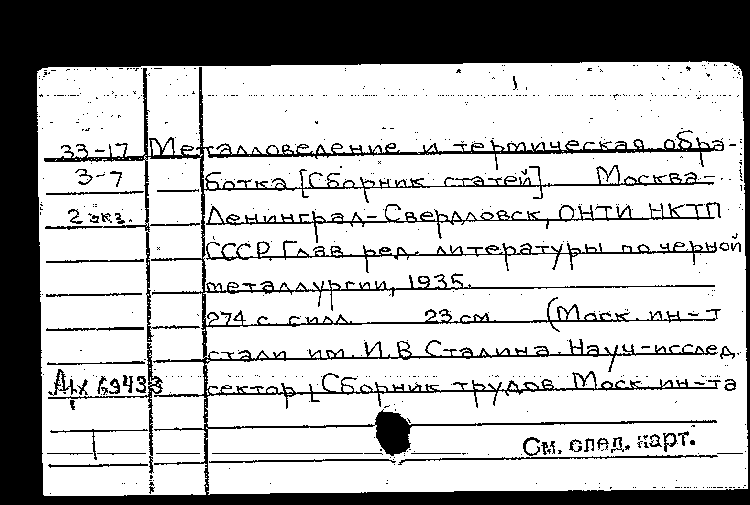 33-17 Металловедение и термическая обра-
3-7 ботка [Сборник статей]. Москва-
2 экз. Ленинград-Свердловск, ОНТИ НКТП
СССР. Глав. ред. литературы по черной
металлургии, 1935.
274 с. с илл. 23 см. (Моск. ин-т
стали им. И.В. Сталина. Науч-исслед.
сектор. [Сборник трудов Моск. ин-та
См. след. карт.